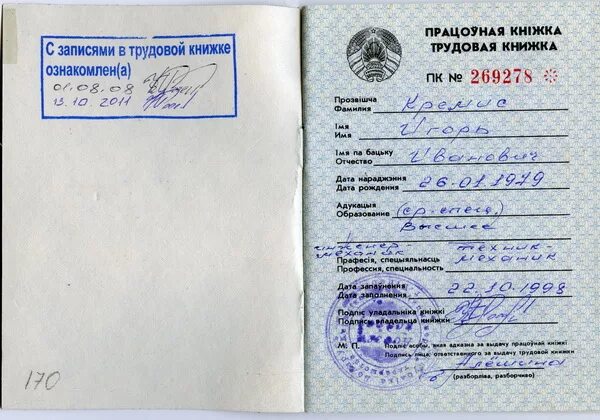 С записями в трудовой книжке
ознакомлен(а)
01.08.08
13.10.2011
170
ПРАЦОЎНАЯ КНІЖКА
ТРУДОВАЯ КНИЖКА
ПК № 269278
Прозвішча
Фамилия
Кремис
Імя
Имя
Игорь
Імя па бацьку
Отчество
Иванович
Дата нараджэння
Дата рождения
26.01.1979
Адукацыя
Образование
(ср.-спец.)
Высшее
инженер-
механик
техник-
механик
Прафесія, спецыяльнасць
Профессия, специальность
Дата запаўнення
Дата заполнения
22.10.1998
Подпіс уладальніка кніжкі
Подпись владельца книжки
М. П.
Подпіс асобы, якая адказна за выдачу працоўнай кніжкі
Подпись лица, ответственного за выдачу трудовой книжки
Алёшина
(разборліва, разборчиво)